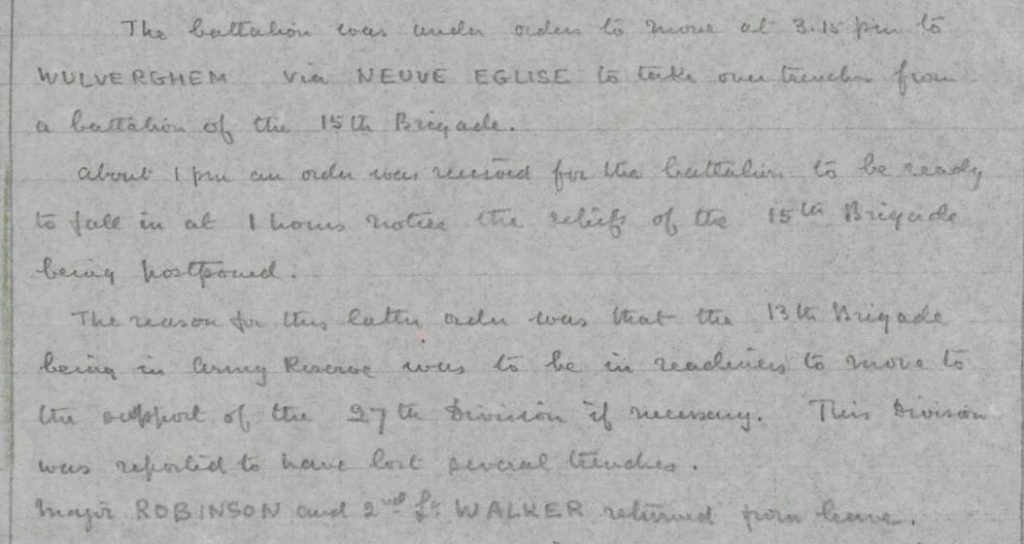 The battalion was under orders to move at 3.15 pm to
WULVERGHEM via NEUVE EGLISE to take over trenches from
a battalion of the 15th Brigade.
About 1 pm an order was received for the battalion to be ready
to fall in at 1 hours notice the relief of the 15th Brigade
being postponed.
The reason for this latter order was that the 13th Brigade
being in Army Reserve was to be in readiness to move to
the support of the 27th Division if necessary. This Division
was reported to have lost several trenches.
Major ROBINSON and 2nd Lt WALKER returned from leave.